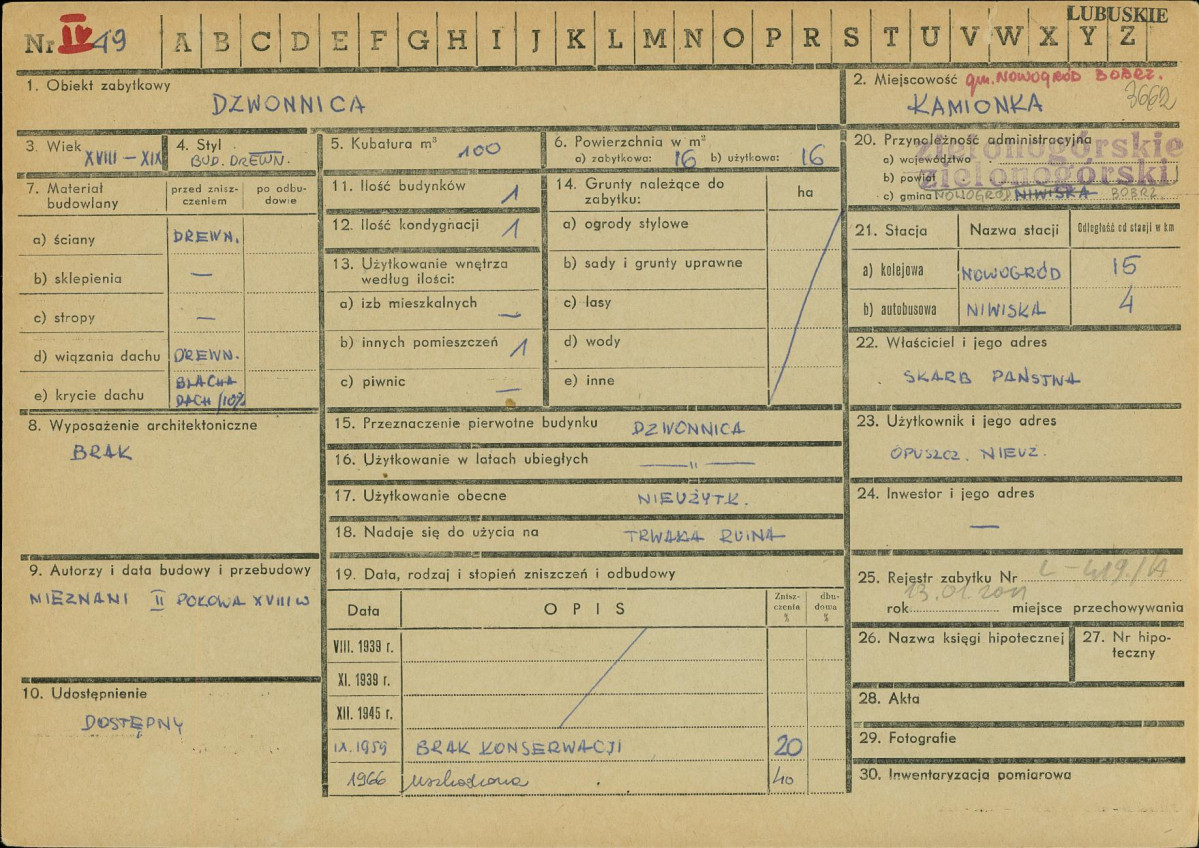 LUBUSKIE
Nr IV 49 A B C D E F G H I J K L M N O P R S T U V W X Y Z
1. Obiekt zabytkowy
DZWONNICA
2. Miejscowość gm. NOWOGRÓD BOBRZ.
KAMIONKA 3662
3. Wiek XVIII – XIX
4. Styl
BUD. DREWN.
5. Kubatura m³ 100
6. Powierzchnia w m²
a) zabytkowa: 16 b) użytkowa: 16
7. Materiał budowlany
przed zniszczeniem
po odbudowie
a) ściany DREWN.
b) sklepienia —
c) stropy —
d) wiązania dachu DREWN.
e) krycie dachu BLACHA
DACH/10%
8. Wyposażenie architektoniczne
BRAK
9. Autorzy i data budowy i przebudowy
NIEZNANI II POŁOWA XVIII W
10. Udostępnienie
DOSTĘPNY
11. Ilość budynków 1
12. Ilość kondygnacji 1
13. Użytkowanie wnętrza
według ilości:
a) izb mieszkalnych —
b) innych pomieszczeń 1
c) piwnic —
14. Grunty należące do
zabytku:
ha
a) ogrody stylowe
b) sady i grunty uprawne
c) lasy
d) wody
e) inne
15. Przeznaczenie pierwotne budynku DZWONNICA
16. Użytkowanie w latach ubiegłych —"—
17. Użytkowanie obecne NIEUŻYTK.
18. Nadaje się do użycia na TRWAŁA RUINA
19. Data, rodzaj i stopień zniszczeń i odbudowy
Data OPIS
Zniszczenia %
dbudowa %
VIII. 1939 r.
XI. 1939 r.
XII. 1945 r.
IX. 1959 BRAK KONSERWACJI 20
1966 uszkodzona 40
20. Przynależność administracyjna
a) województwo zielonogórskie
b) powiat zielonogórski
c) gmina NOWOGRÓD NIWISKA BOBRZ
21. Stacja
Nazwa stacji
Odległość od stacji w km
a) kolejowa NOWOGRÓD 15
b) autobusowa NIWISKA 4
22. Właściciel i jego adres
SKARB PAŃSTWA
23. Użytkownik i jego adres
OPUSZCZ. NIEUŻ.
24. Inwestor i jego adres
—
25. Rejestr zabytku Nr L-419/A
rok 13.01.2011 miejsce przechowywania
26. Nazwa księgi hipotecznej
27. Nr hipoteczny
28. Akta
29. Fotografie
30. Inwentaryzacja pomiarowa